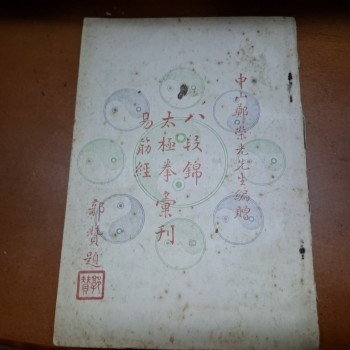 中山鄭榮光先生編贈
八段錦
太極拳彙刊
易筋經
鄒贊題